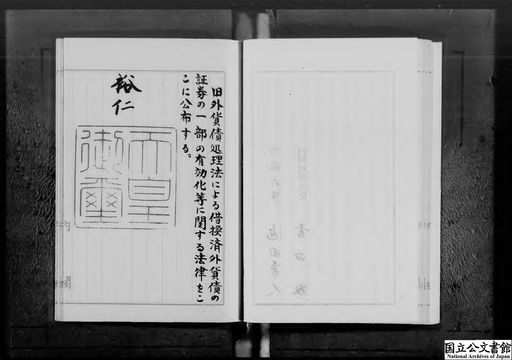 旧外貨債処理法による借換済外貨債の
証券の一部の有効化等に関する法律をこ
こに公布する。
裕仁
天皇
御璽
国立公文書館
National Archives of Japan